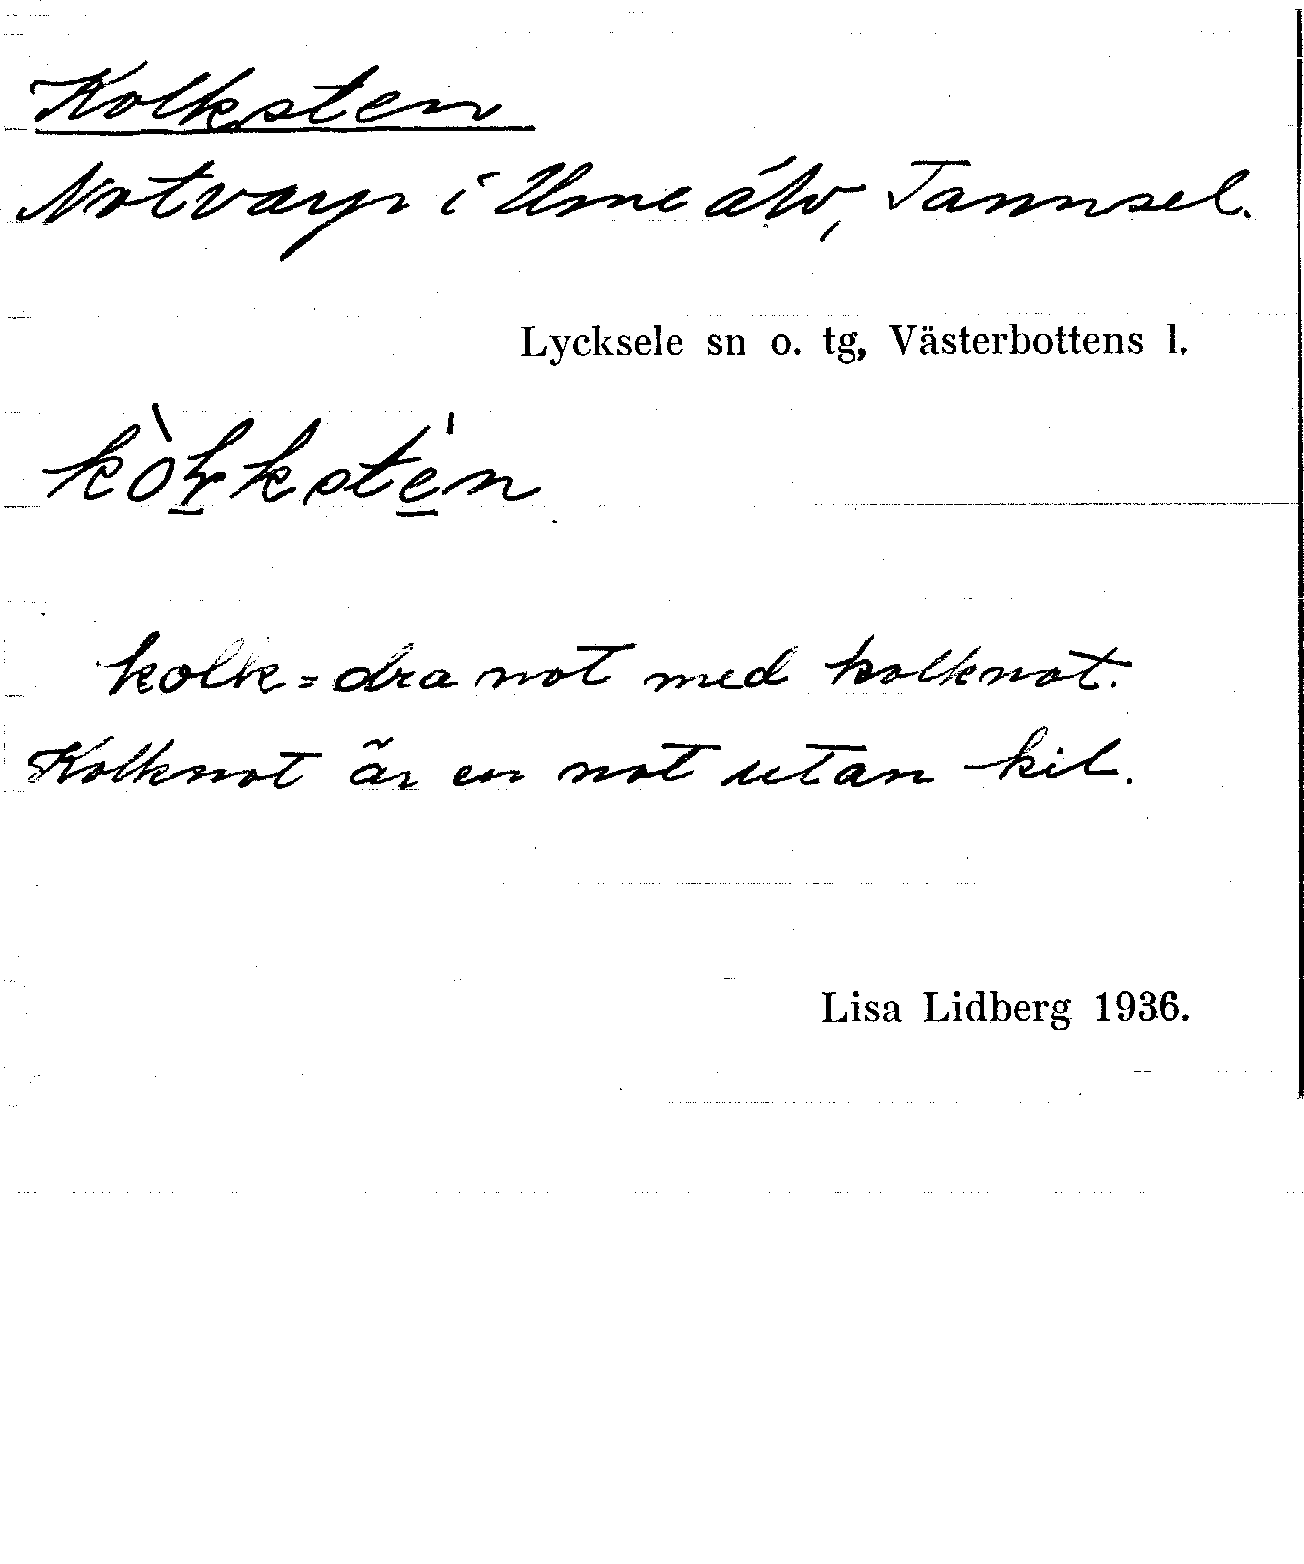 Kolksten
Notvarp i Ume älv, Tannsel.
Lycksele sn o. tg, Västerbottens l.
kolk = dra not med kolknot.
Kolknot är en not utan kil.
Lisa Lidberg 1936.